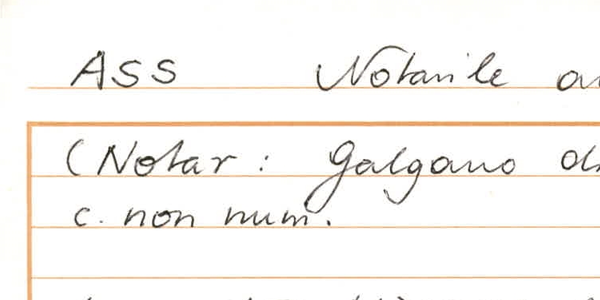 ASS Notarile
(Notar: Galgano
c. non num.